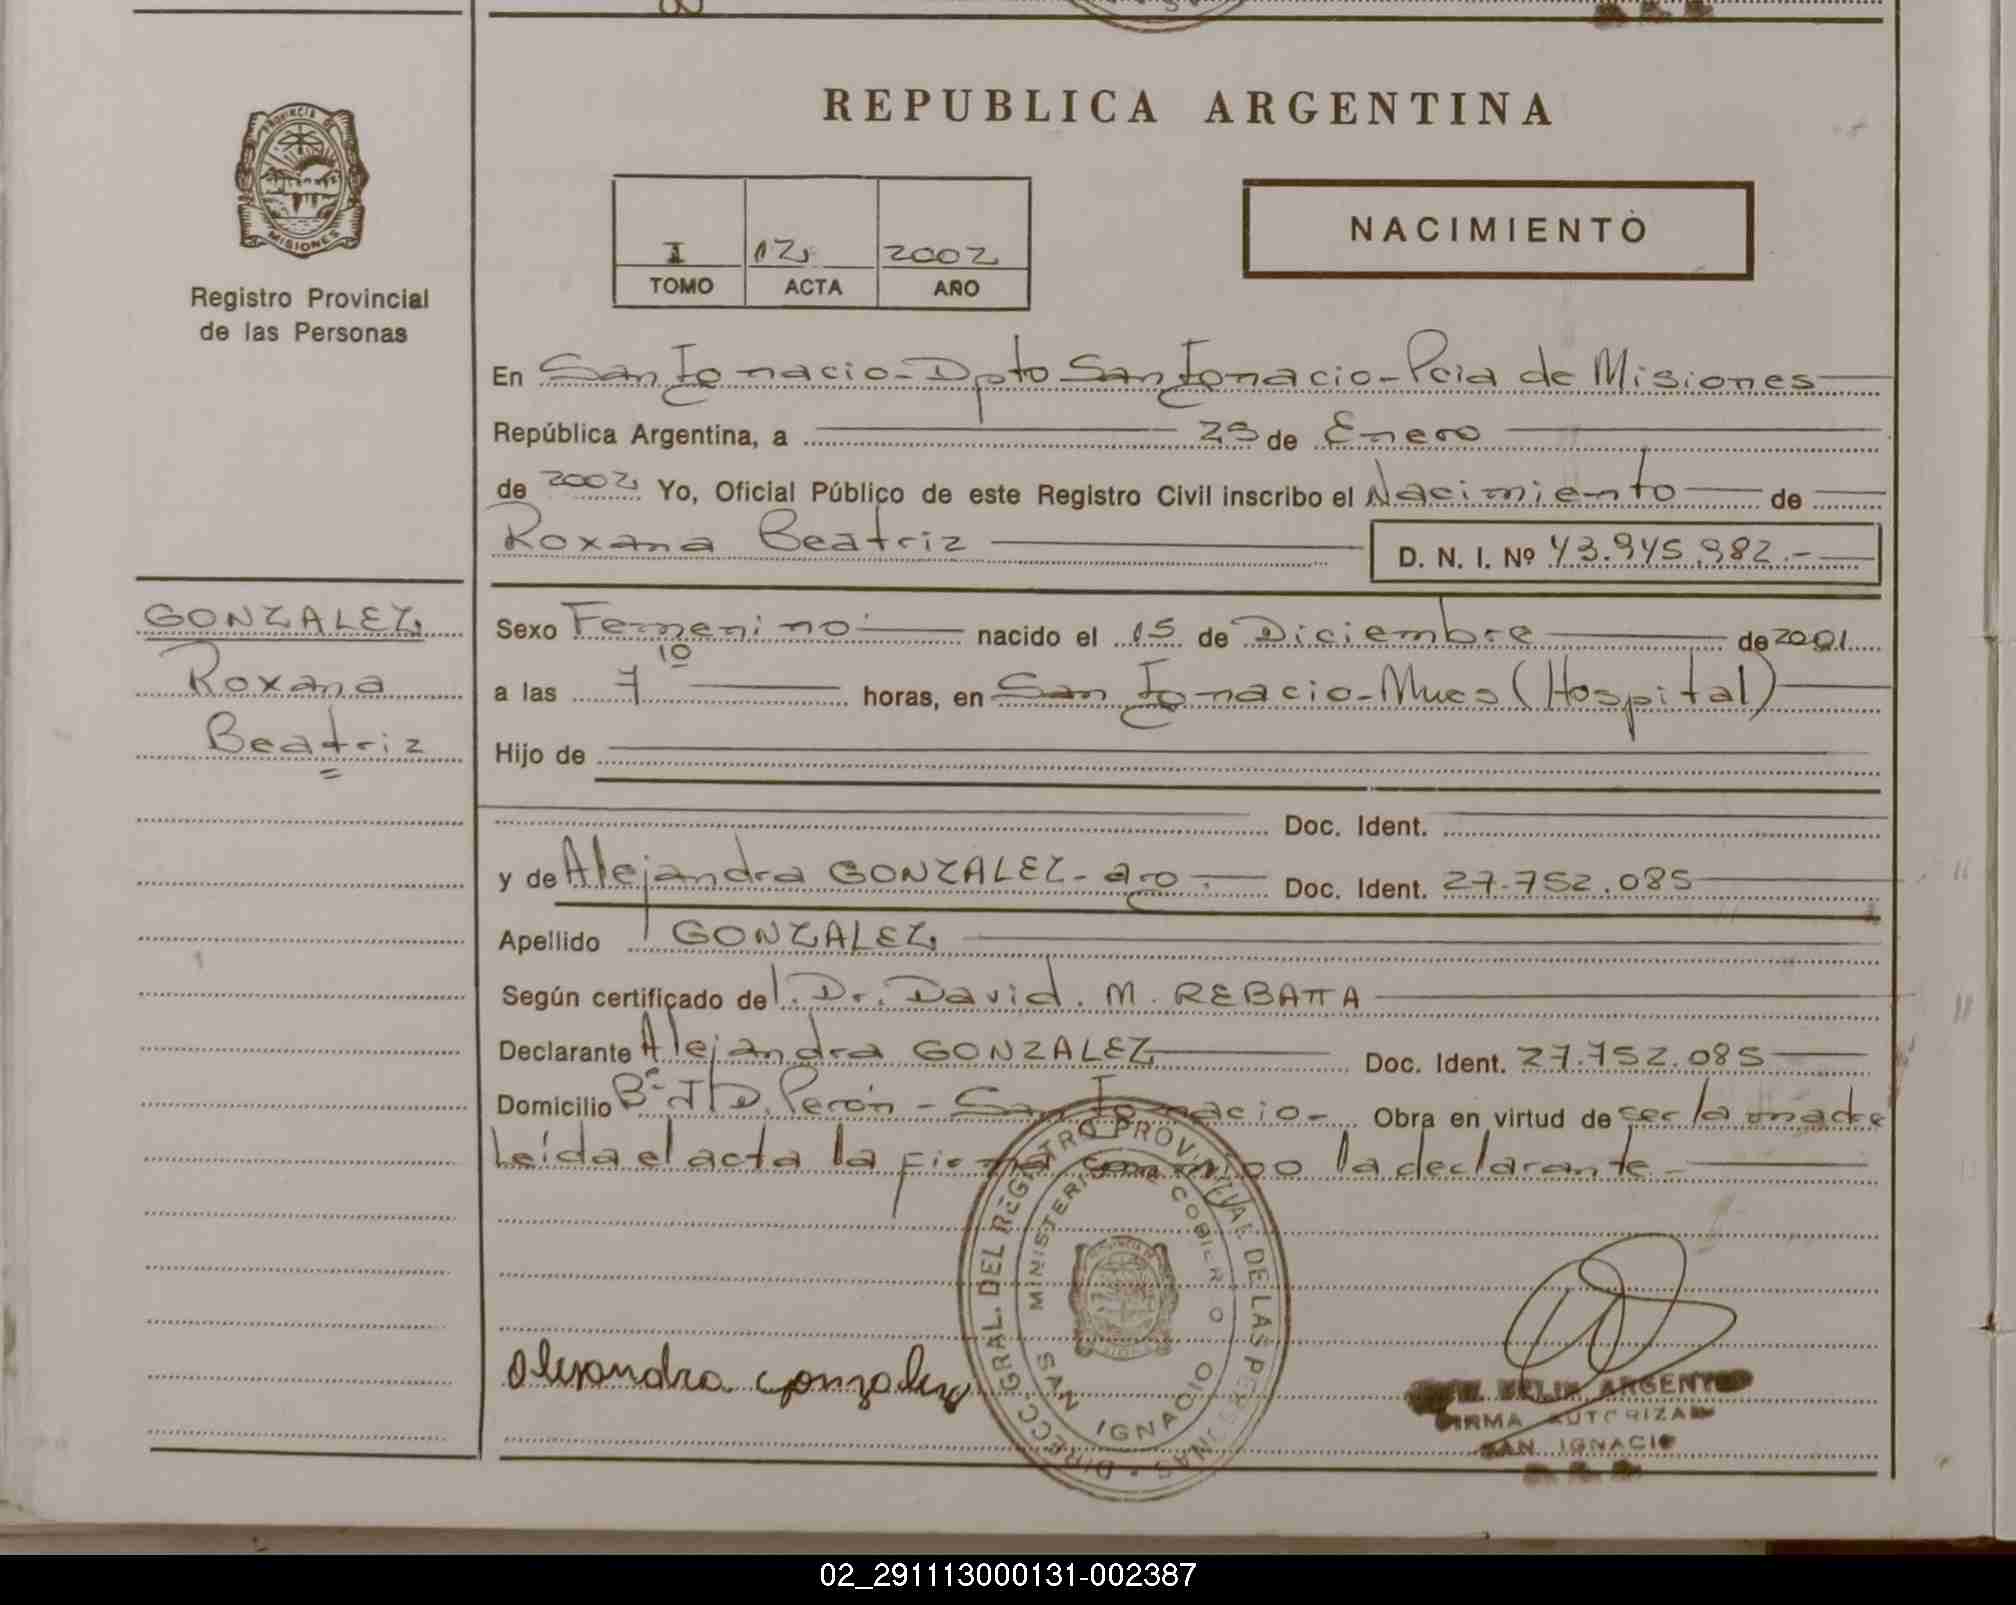 REPUBLICA ARGENTINA
PROVINCIA DE MISIONES
Registro Provincial
de las Personas
I 12 2002
TOMO ACTA AÑO
NACIMIENTO
En San Ignacio - Dpto San Ignacio - Pcia de Misiones
República Argentina, a 23 de Enero
de 2002 Yo, Oficial Público de este Registro Civil inscribo el Nacimiento de
Roxana Beatriz D. N. I. Nº 43.945.982.-
GONZALEZ
Roxana
Beatriz
Sexo Femenino nacido el 15 de Diciembre de 2001
a las 7 10 horas, en San Ignacio - Mnes (Hospital)
Hijo de
Doc. Ident.
y de Alejandra GONZALEZ - arg. Doc. Ident. 27.752.085
Apellido GONZALEZ
Según certificado del Dr. David. M. REBATTA
Declarante Alejandra GONZALEZ Doc. Ident. 27.752.085
Domicilio Bº J D. Perón - San Ignacio - Obra en virtud de ser la madre
Leída el acta la firma conmigo la declarante -
DIRECC. GRAL. DEL REGISTRO PROVINCIAL DE LAS PERSONAS
MINISTERIO DE GOBIERNO
SAN IGNACIO
Alejandra Gonzalez
FELIX ARGENTINO
FIRMA AUTORIZADA
SAN IGNACIO
02_291113000131-002387